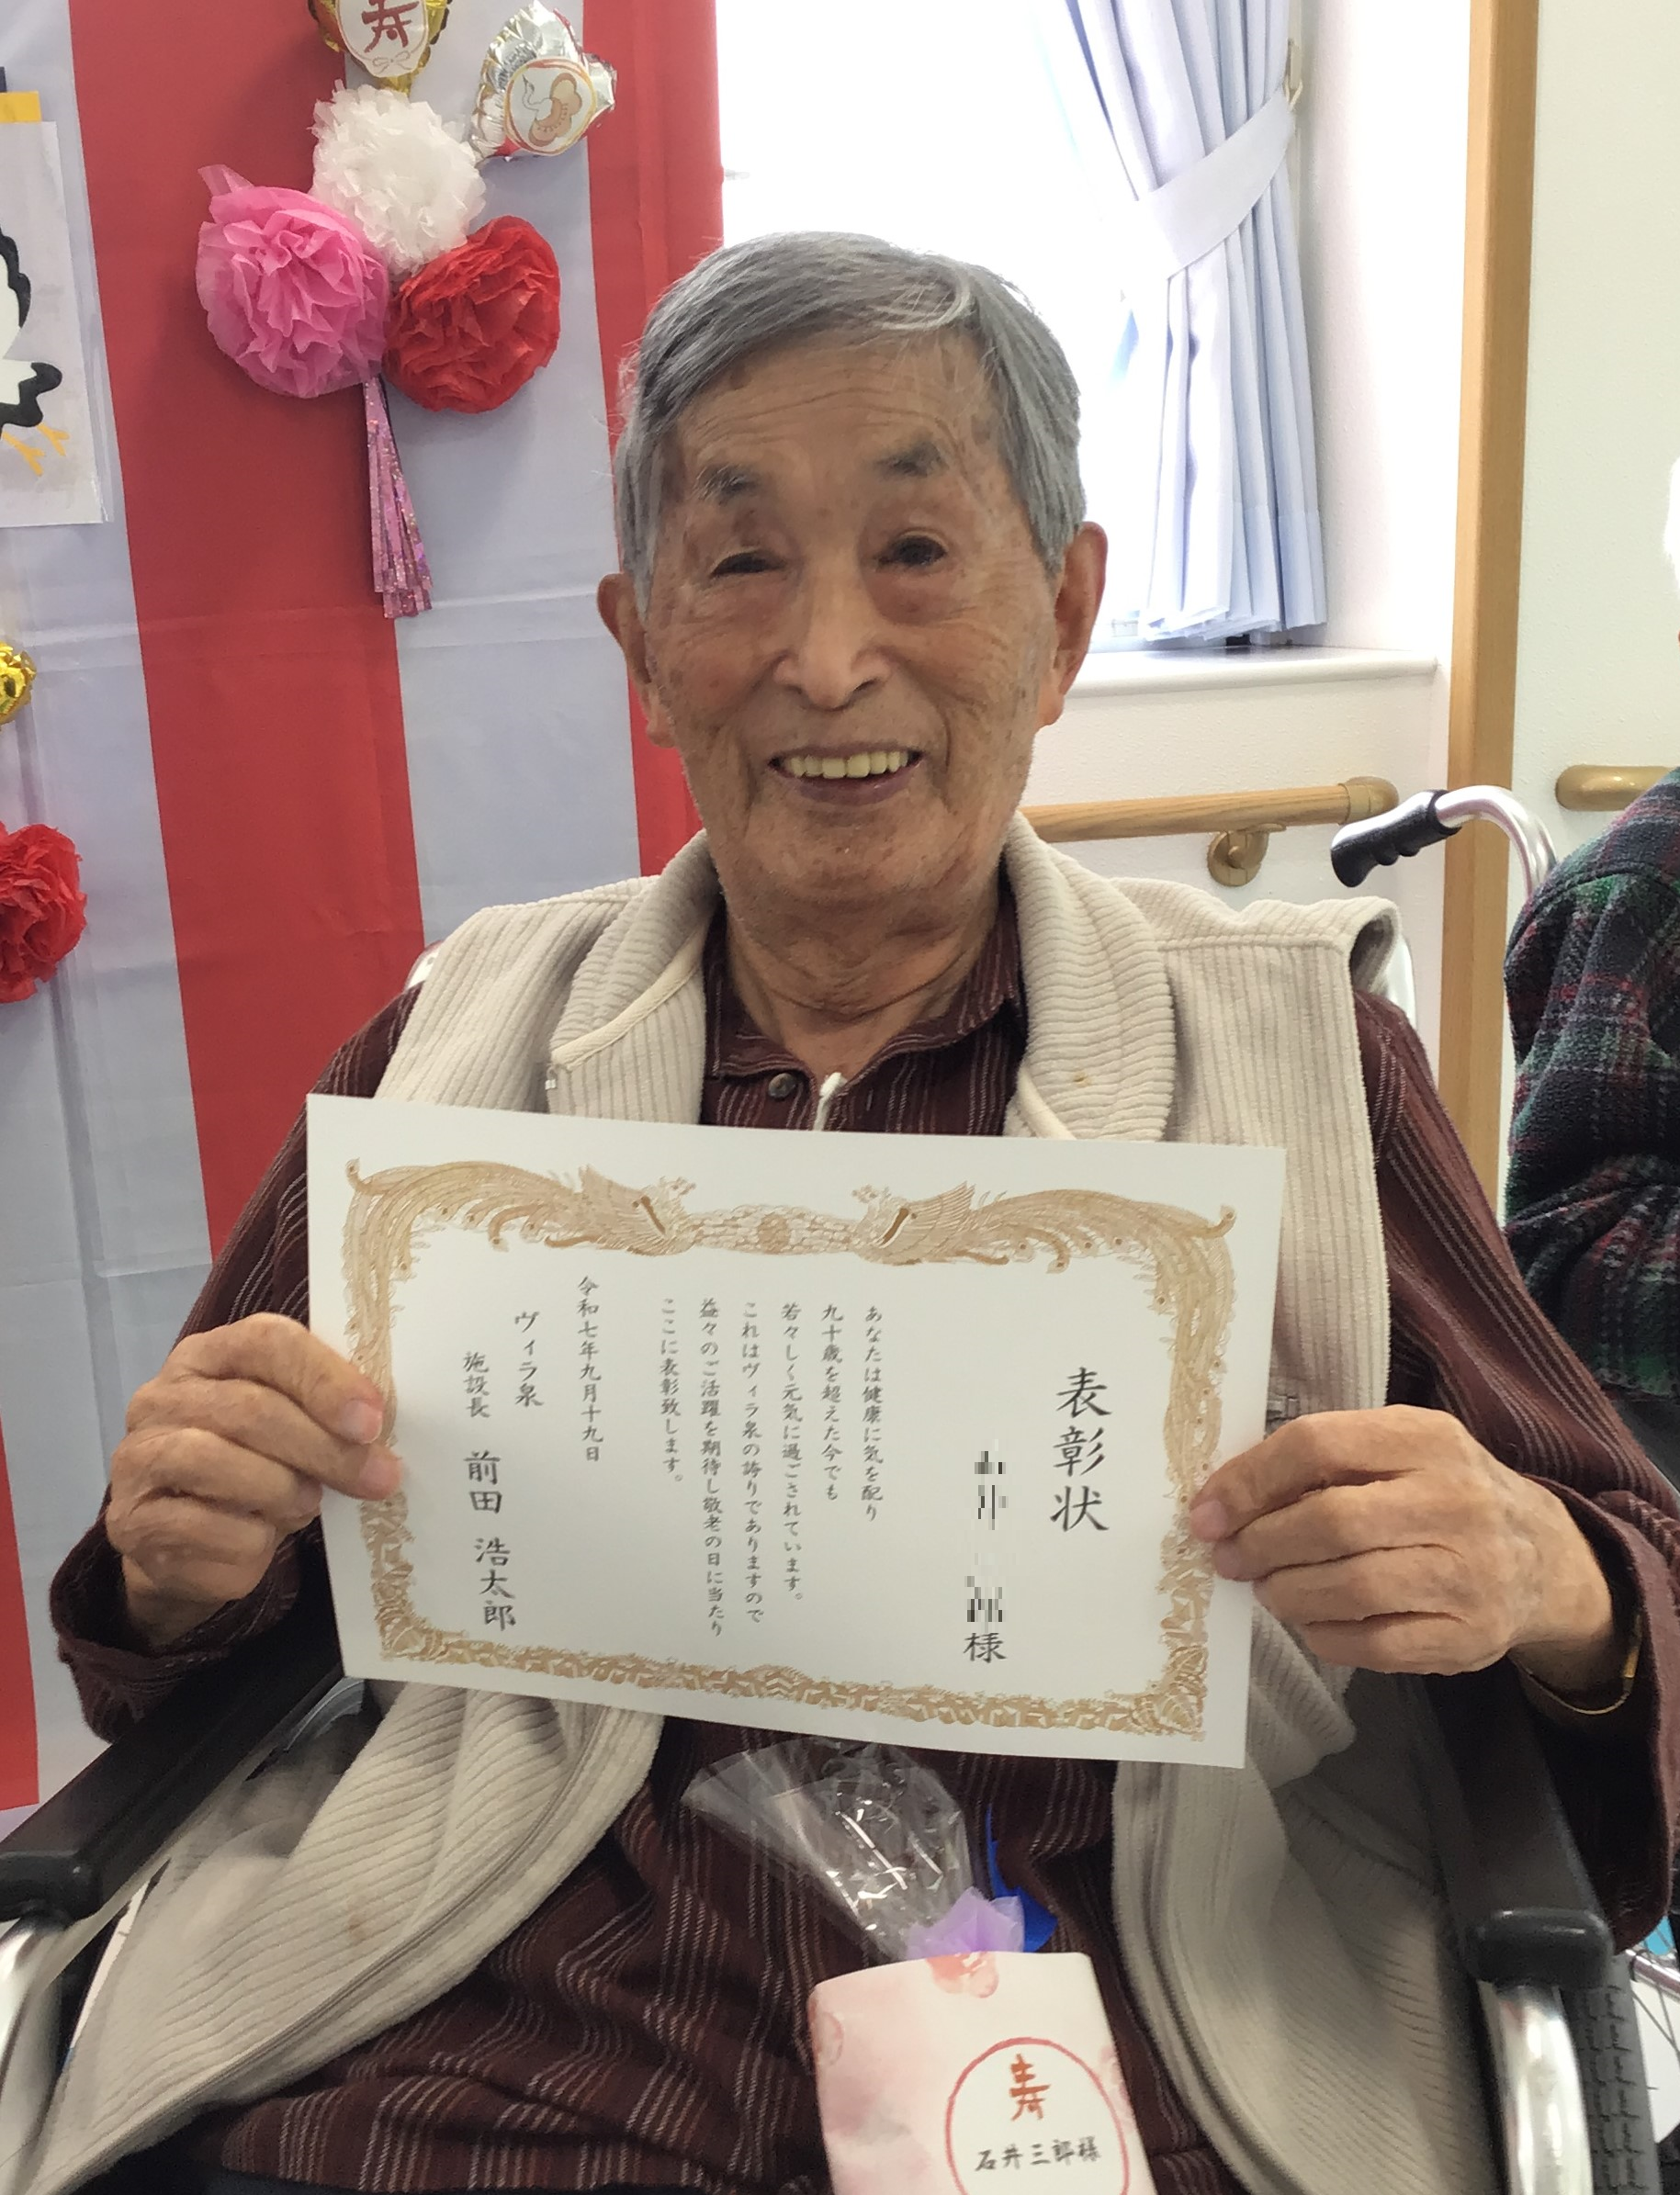 寿
表彰状
様
あなたは健康に気を配り
九十歳を超えた今でも
若々しく元気に過ごされています。
これはヴィラ泉の誇りでありますので
益々のご活躍を期待し敬老の日に当たり
ここに表彰致します。
令和七年九月十九日
ヴィラ泉
施設長 前田 浩太郎
寿
石井三郎様